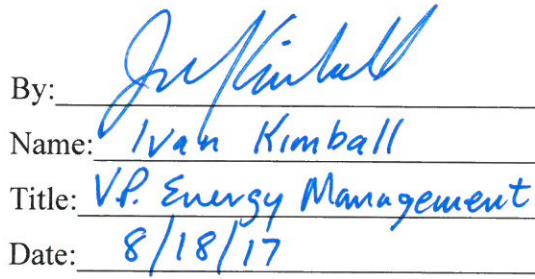 By:
Name: Ivan Kimball
Title: V.P. Energy Management
Date: 8/18/17